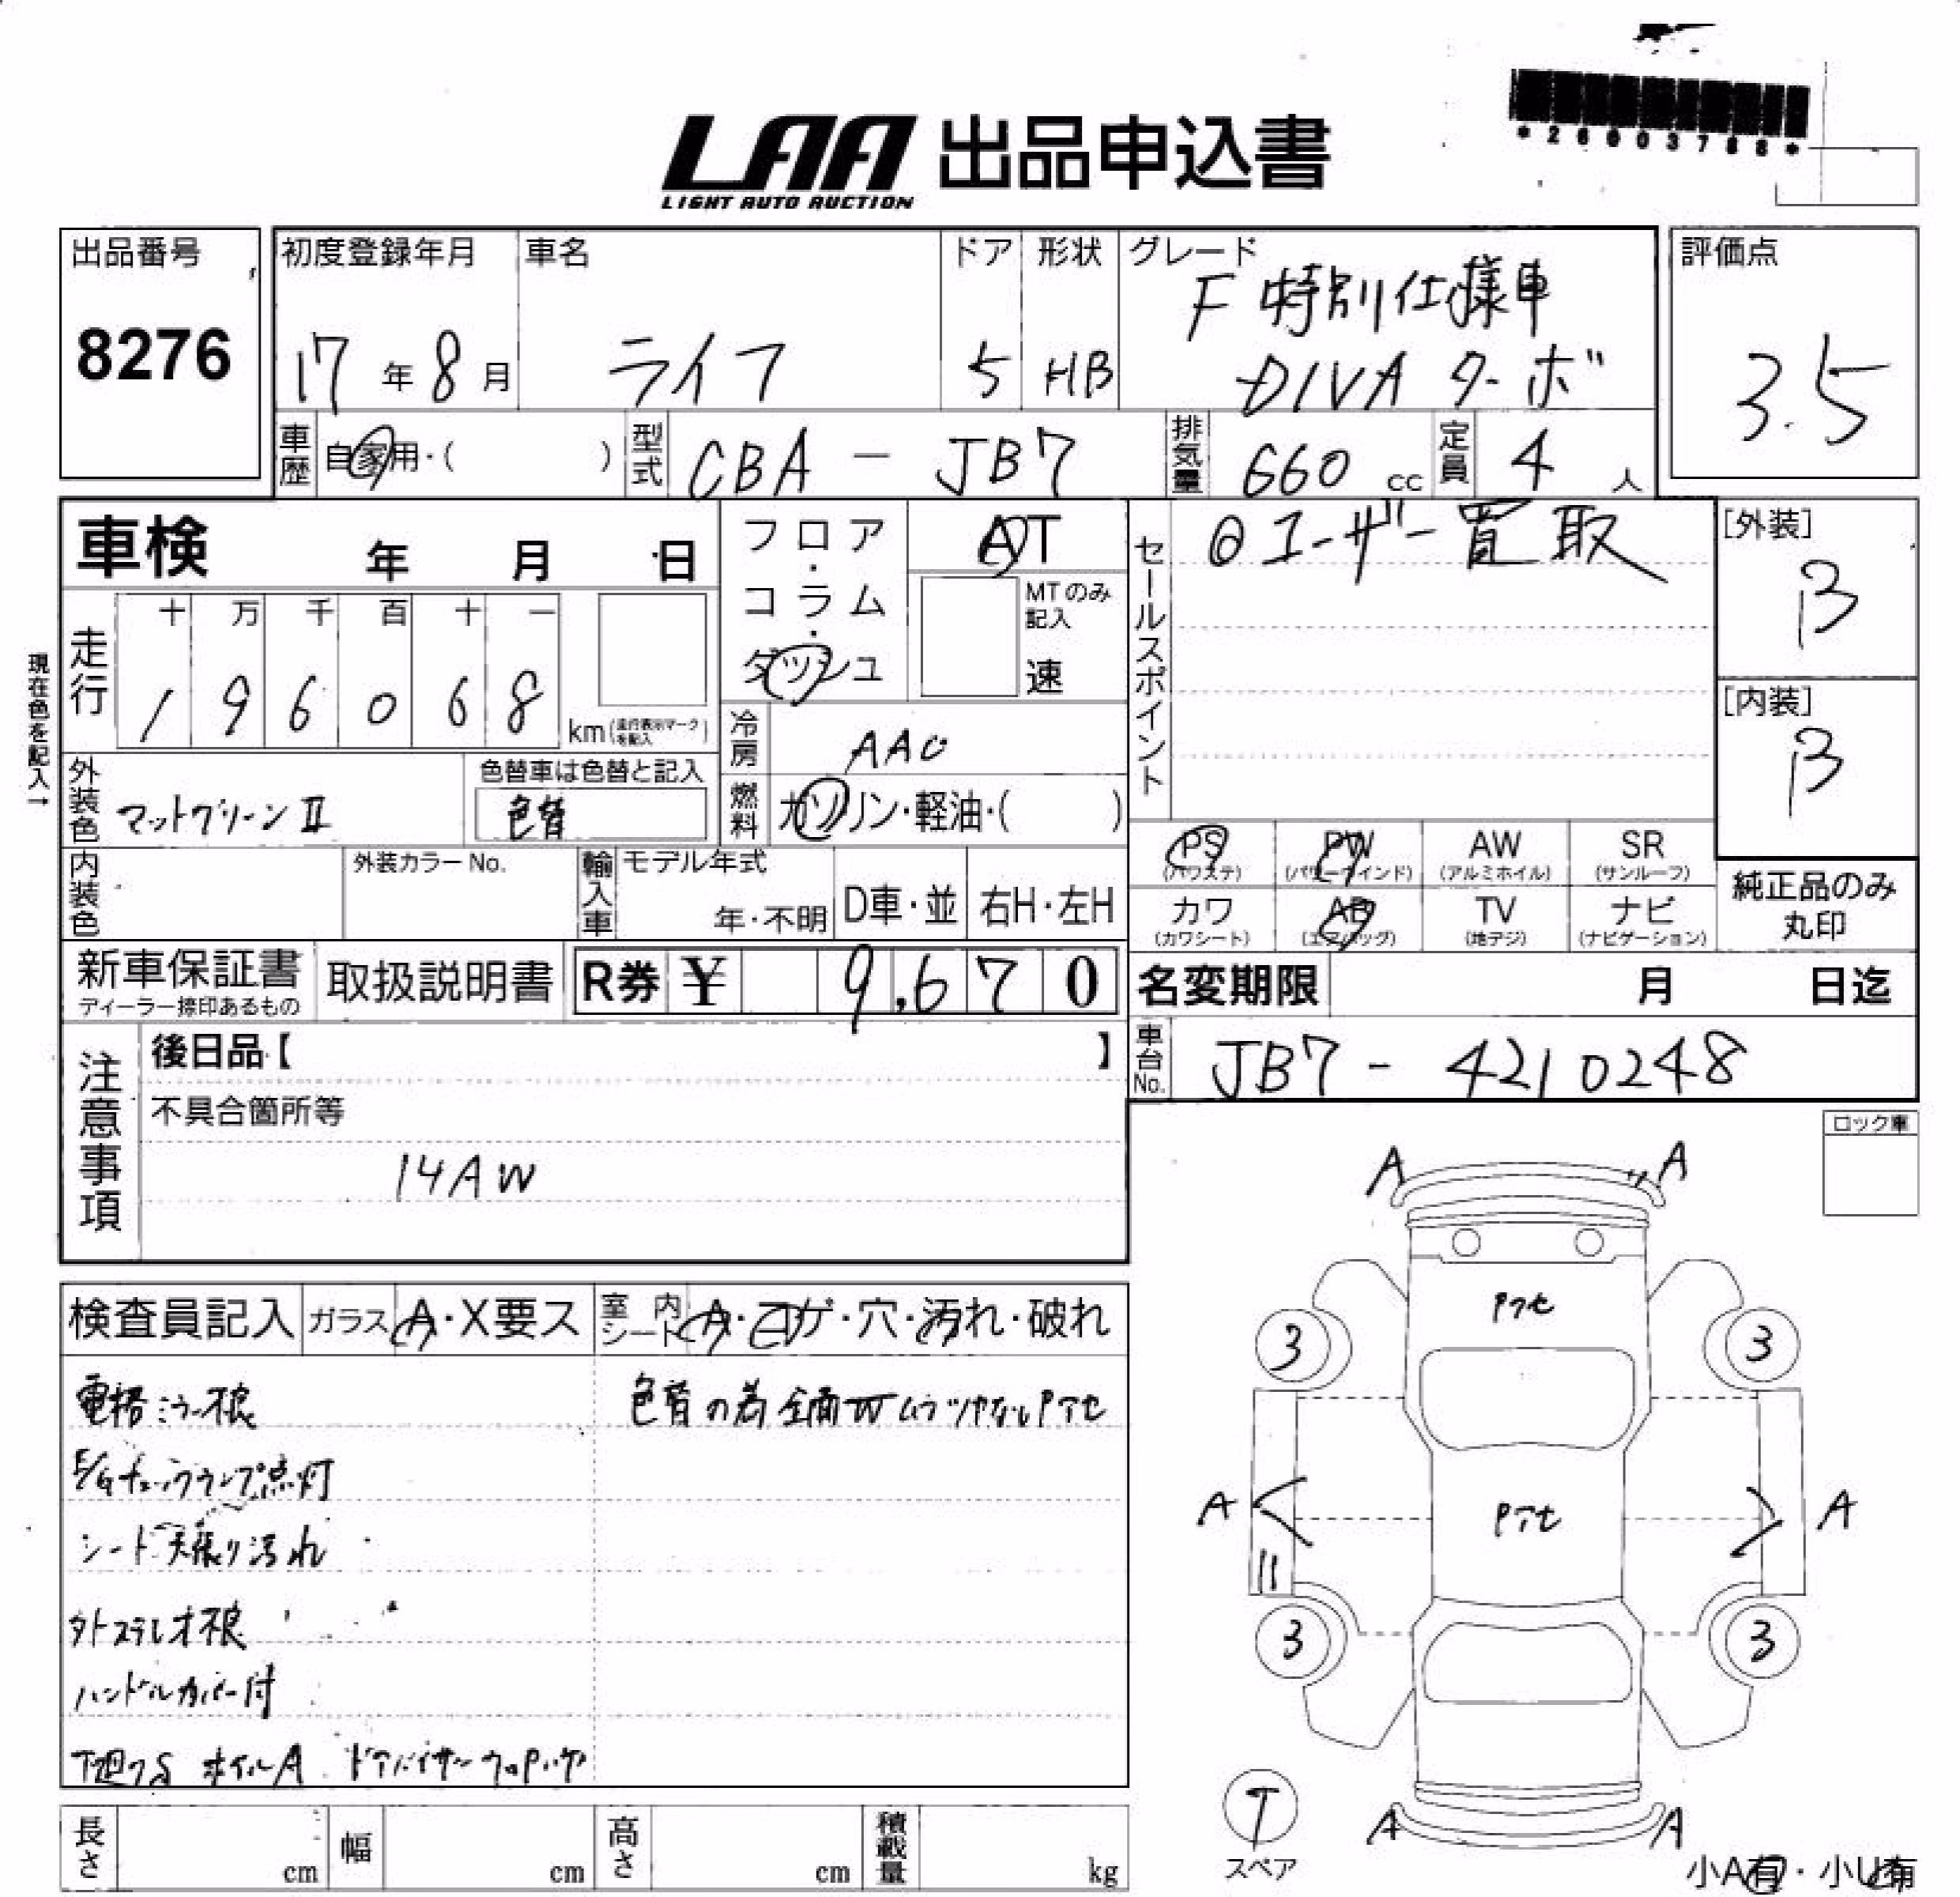 LAA 出品申込書
LIGHT AUTO AUCTION
*26003788*
出品番号
8276
初度登録年月
17年8月
車名
ライフ
ドア
5
形状
HB
グレード
F 特別仕様車
DIVA ターボ
評価点
3.5
車歴
自家用・( )
型式
CBA - JB7
排気量
660 cc
定員
4 人
車検 年 月 日
フロア・コラム・ダッシュ
AT
MTのみ記入
速
セールスポイント
◎ユーザー買取
[外装]
B
[内装]
B
現在色を記入→
走行
十 万 千 百 十 一
1 9 6 0 6 8
km(走行表示マークを記入)
冷房
AAC
燃料
ガソリン・軽油・( )
外装色
マットグリーンⅡ
色替車は色替と記入
色替
内装色
外装カラーNo.
輸入車
モデル年式
年・不明
D車・並
右H・左H
PS
(パワステ)
PW
(パワーウインド)
AW
(アルミホイル)
SR
(サンルーフ)
カワ
(カワシート)
AB
(エアバッグ)
TV
(地デジ)
ナビ
(ナビゲーション)
純正品のみ
丸印
新車保証書
ディーラー捺印あるもの
取扱説明書
R券 ¥ 9,670
名変期限 月 日迄
車台No.
JB7 - 4210248
注意事項
後日品【 】
不具合箇所等
14AW
ロック車
検査員記入
ガラス A・X要ス
室内シート A・コゲ・穴・汚れ・破れ
電格ミラー不良
E/Gチェックランプ点灯
シート天張り汚れ
外ステレオ不良
ハンドルカバー付
下廻りS ホイルA ドアバイザー
色替の為全面W ムラツヤなしPアセ
A A
Pアセ
3 3
A Pアセ A
3 3
T
スペア
A A
小A有・小U有
長さ cm
幅 cm
高さ cm
積載量 kg